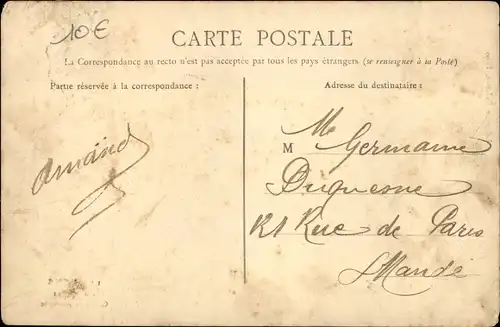 10€
CARTE POSTALE
La Correspondance au recto n'est pas acceptée par tous les pays étrangers (se renseigner à la Poste)
Partie réservée à la correspondance :
Adresse du destinataire :
Armand
M Me Germaine
Duquesne
121 Rue de Paris
St Mandé